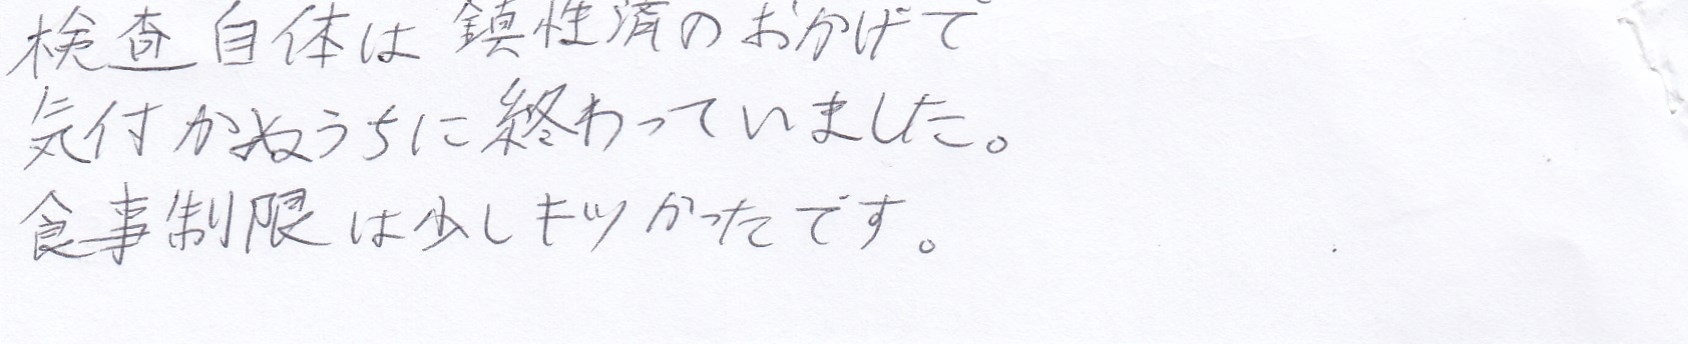 検査自体は鎮性済のおかげで
気付かぬうちに終わっていました。
食事制限は少しキツかったです。